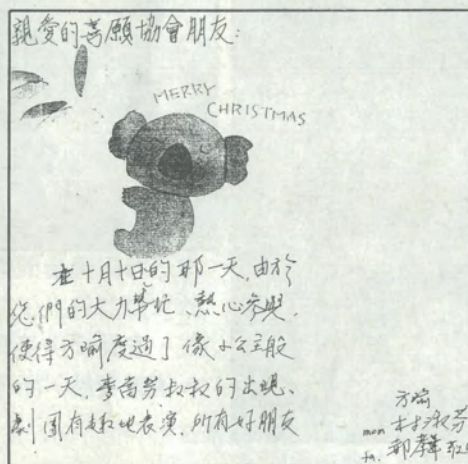 親愛的喜願協會朋友:
MERRY
CHRISTMAS
在十月十日的那一天,由於
您們的大力幫忙、熱心參與,
使得方瑜度過了像小公主般
的一天,李富勞叔叔的出現、
劇團有趣地表演,所有好朋友
方瑜
mom 林淑芬
fa.